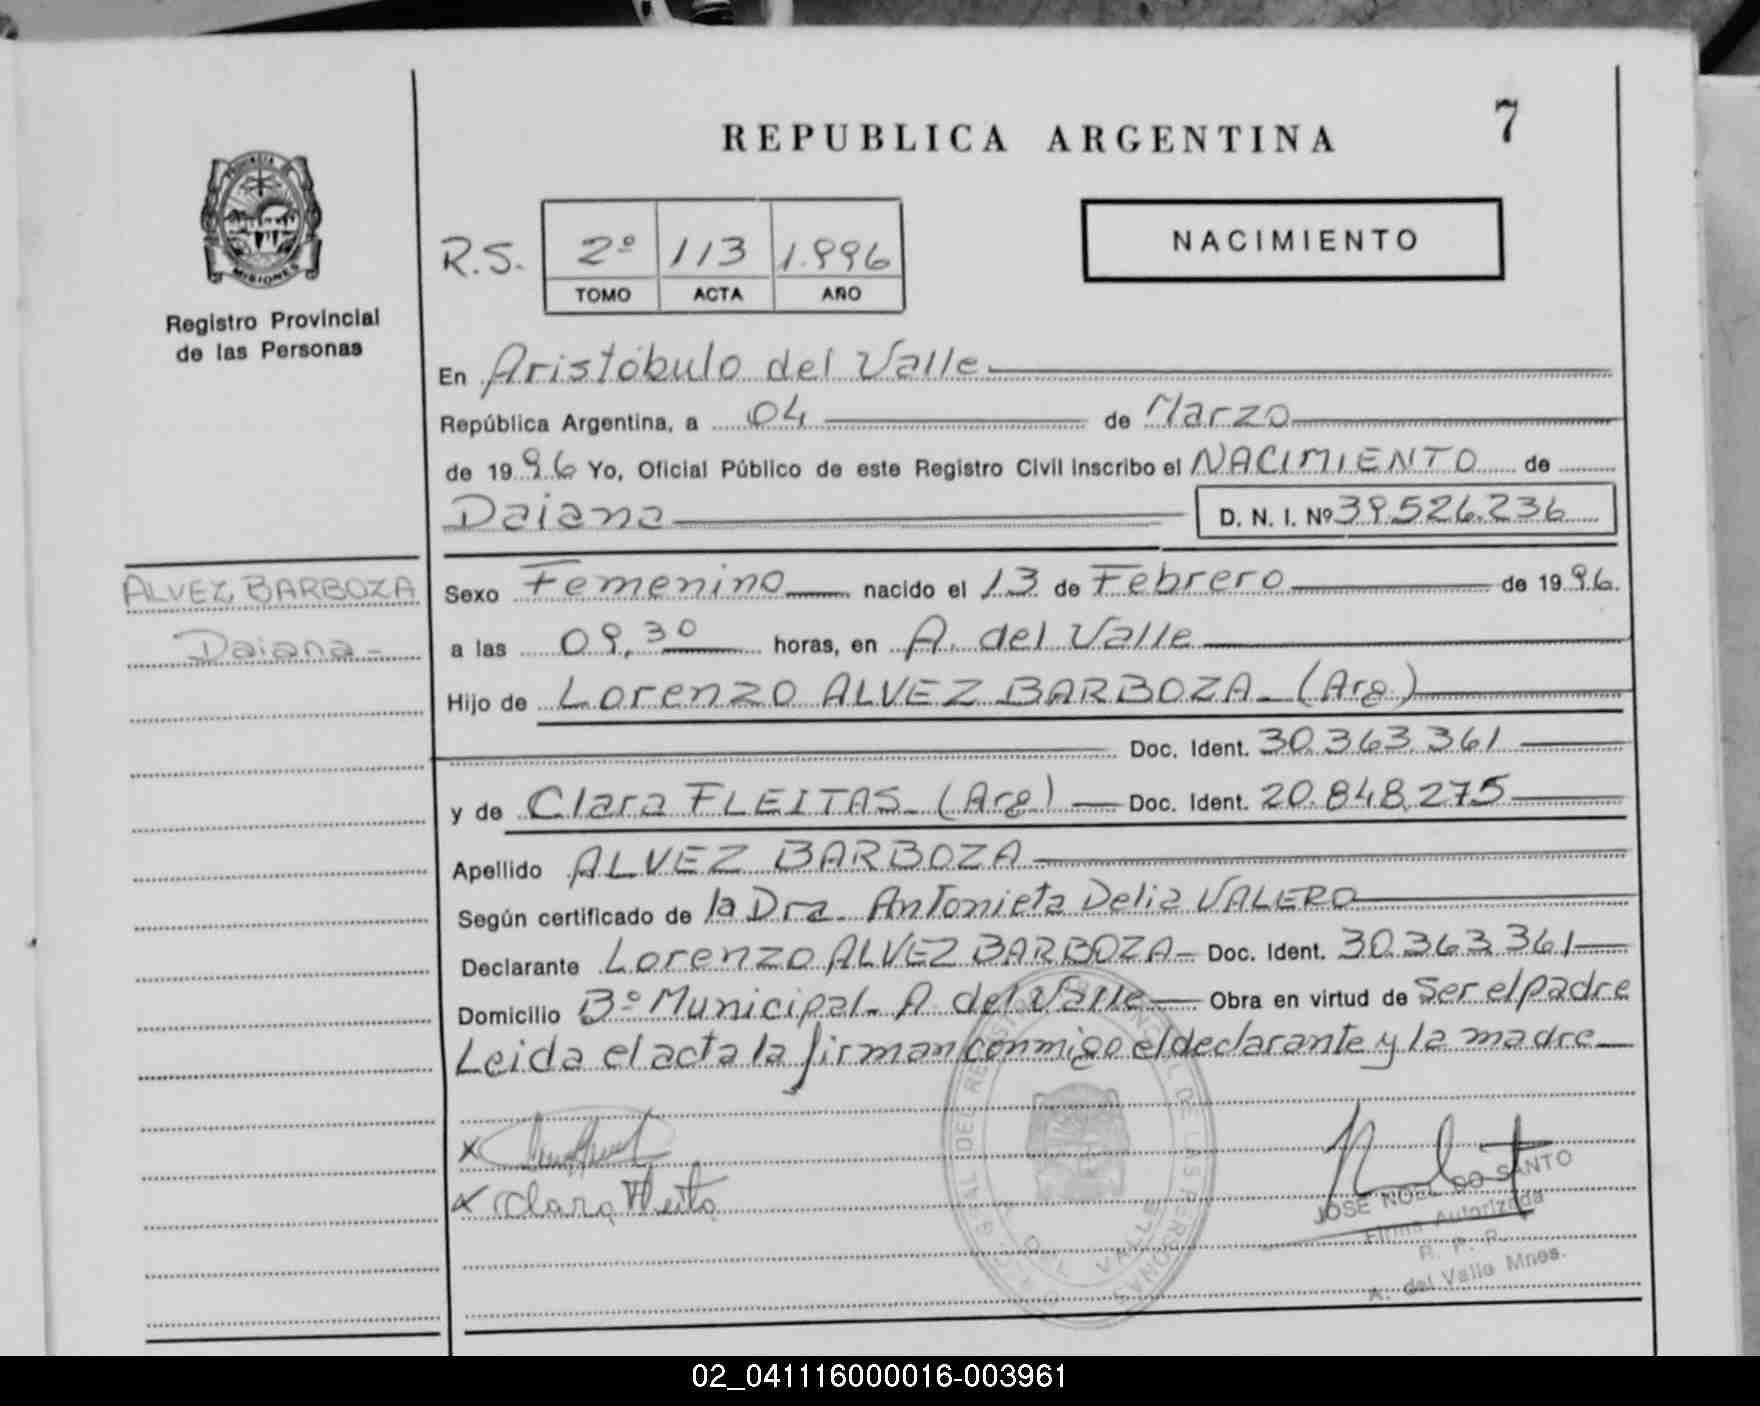 7
REPUBLICA ARGENTINA
PROVINCIA
MISIONES
Registro Provincial
de las Personas
R.S. 2º 113 1.996
TOMO ACTA AÑO
NACIMIENTO
En Aristóbulo del Valle
República Argentina, a 04 de Marzo
de 1996 Yo, Oficial Público de este Registro Civil inscribo el NACIMIENTO de
Daiana D. N. I. Nº 39.526.236
ALVEZ BARBOZA
Daiana-
Sexo Femenino nacido el 13 de Febrero de 1996.
a las 09,30 horas, en A. del Valle
Hijo de Lorenzo ALVEZ BARBOZA-(Arg.)
Doc. Ident. 30.363.361
y de Clara FLEITAS-(Arg) Doc. Ident. 20.848.275
Apellido ALVEZ BARBOZA
Según certificado de la Dra. Antonieta Delia VALERO
Declarante Lorenzo ALVEZ BARBOZA- Doc. Ident. 30.363.361
Domicilio Bº Municipal- A. del Valle Obra en virtud de Ser el padre
Leida el acta la firman conmigo el declarante y la madre
x
x Clara Fleita
DEL VALLE
JOSE NOEL DO SANTO
Firma Autorizada
R. P. P.
A. del Valle Mnes.
02_041116000016-003961